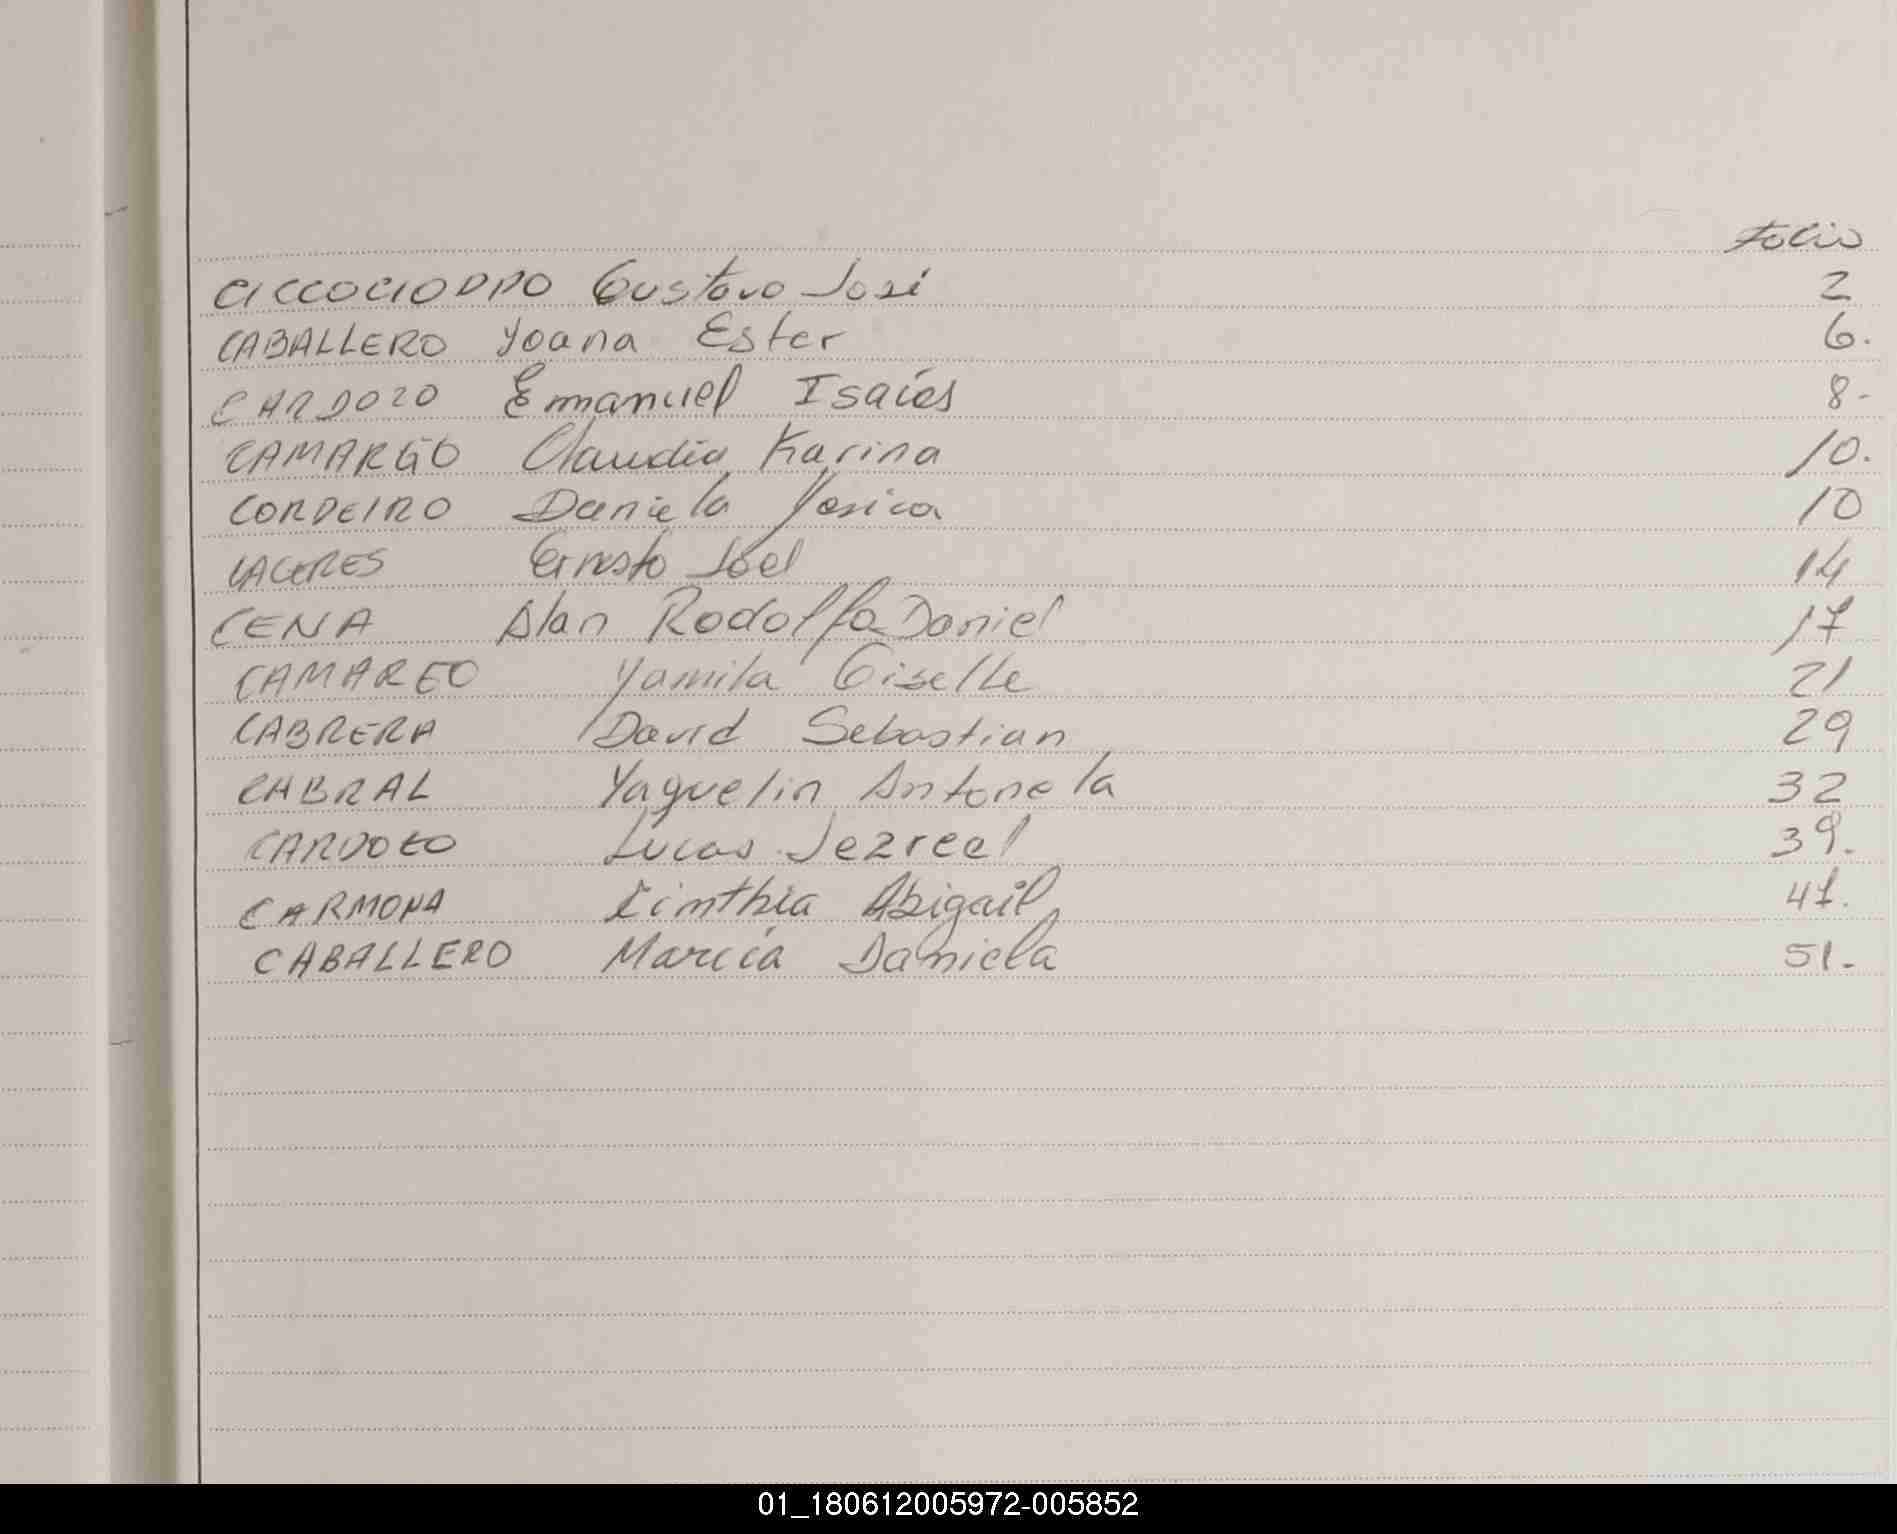 Folio
CICCOCIOPPO Gustavo José 2
CABALLERO Yoana Ester 6.
CARDOZO Emanuel Isaías 8-
CAMARGO Claudia Karina 10.
CORDEIRO Daniela Yesica 10
CACERES Ernesto Joel 14
CENA Alan Rodolfo Daniel 17
CAMARGO Yamila Giselle 21
CABRERA David Sebastian 29
CABRAL Yaquelin Antonela 32
CARDOZO Lucas Jezreel 39.
CARMONA Cinthia Abigail 41.
CABALLERO Marcia Daniela 51.
01_180612005972-005852